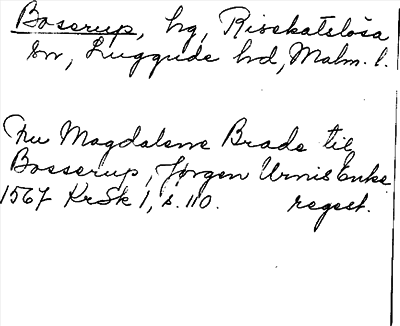 Bosserup, hg, Risekatslösa
sn, Luggude hd, Malm. l.
Fru Magdalene Brade til
Bosserup, Jørgen Urnis Enke
1567 KrSk 1, s. 110. regest.